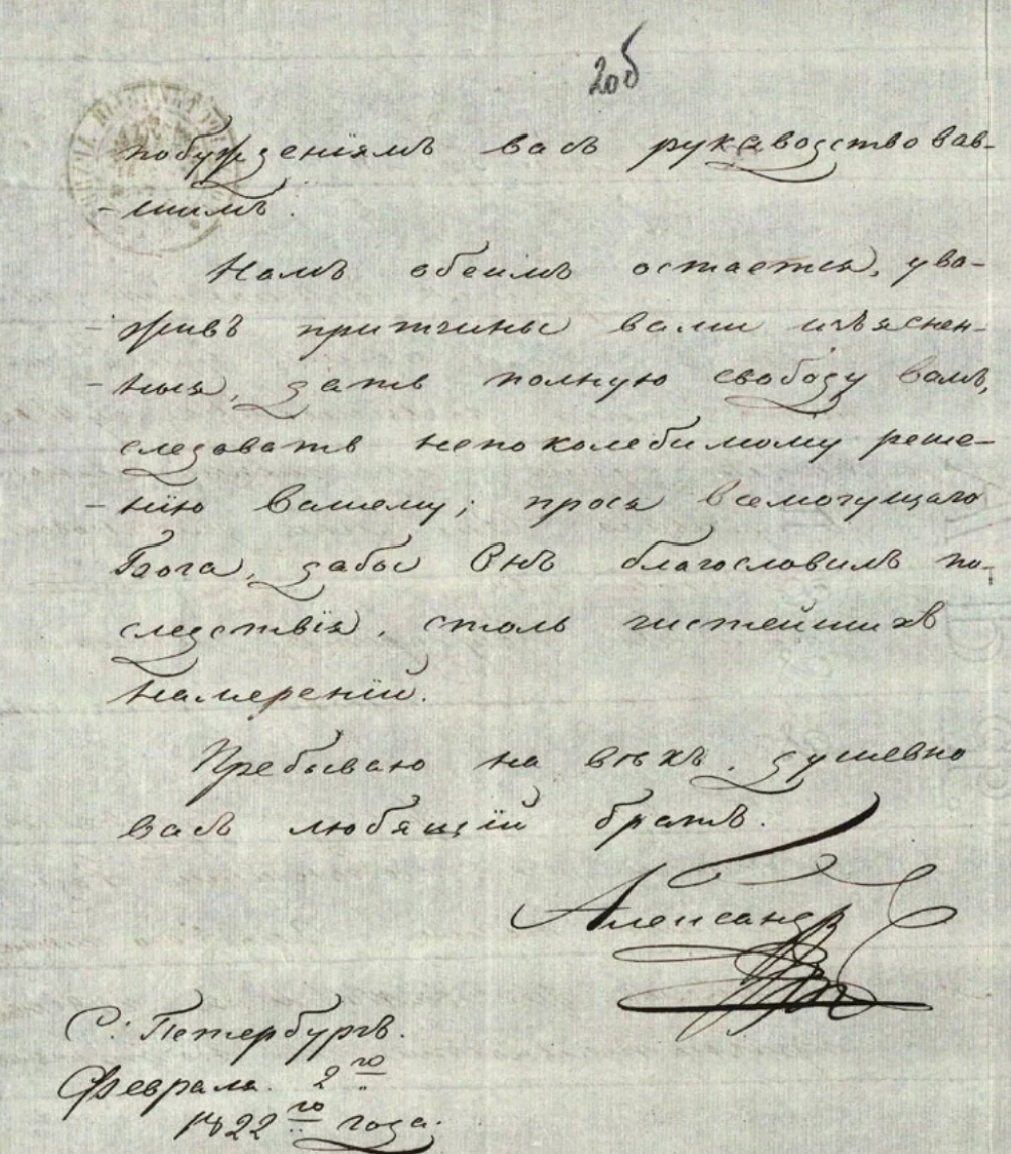 20б
побужденіямъ васъ рукаводствовав-
-шимъ.
Намъ обеимъ остается, ува-
-живъ притчины вами изъяснен-
-ныя, дать полную свободу вамъ,
следовать непоколебимому реше-
-нію вашему; прося Всемогущаго
Бога, дабы Онъ благословилъ по-
следствія, столь чистейшихъ
намереній.
Пребываю на вѣкъ, душевно
васъ любящій братъ.
Александръ
С: Петербургъ.
Февраля. 2го
1822го года.